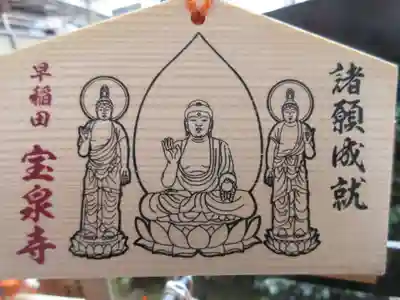 諸願成就
早稲田
宝泉寺